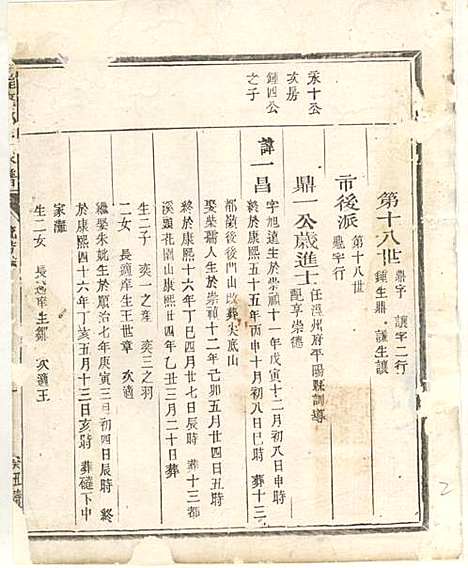 第十八世 鼎字 讓字二行
鍾生鼎 謙生讓
市後派 第十八世
鼎字行
鼎一公歲進士 任溫州府平陽縣訓導
配享崇德
諱一昌 字旭遠生於崇禎十一年戊寅十二月初八日申時
於康熙五十五年丙申十月初八日巳時 葬十三
都嶺後後門山改葬尖底山
娶柴孺人生於崇禎十二年己卯五月廿四日丑時
終於康熙十六年丁巳四月廿七日辰時 葬十三都
溪頭花園山康熙廿四年乙丑三月二十日葬
生二子 奕一之產 奕三之羽
二女 長適庠生王世章 次適
繼娶朱姚生於順治七年庚寅三月初四日辰時 終
於康熙四十六年丁亥五月十三日亥時 葬礚下中
家灘
生二女 長適庠生鄒 次適王
汞十公
亥房
鍾四公
之子